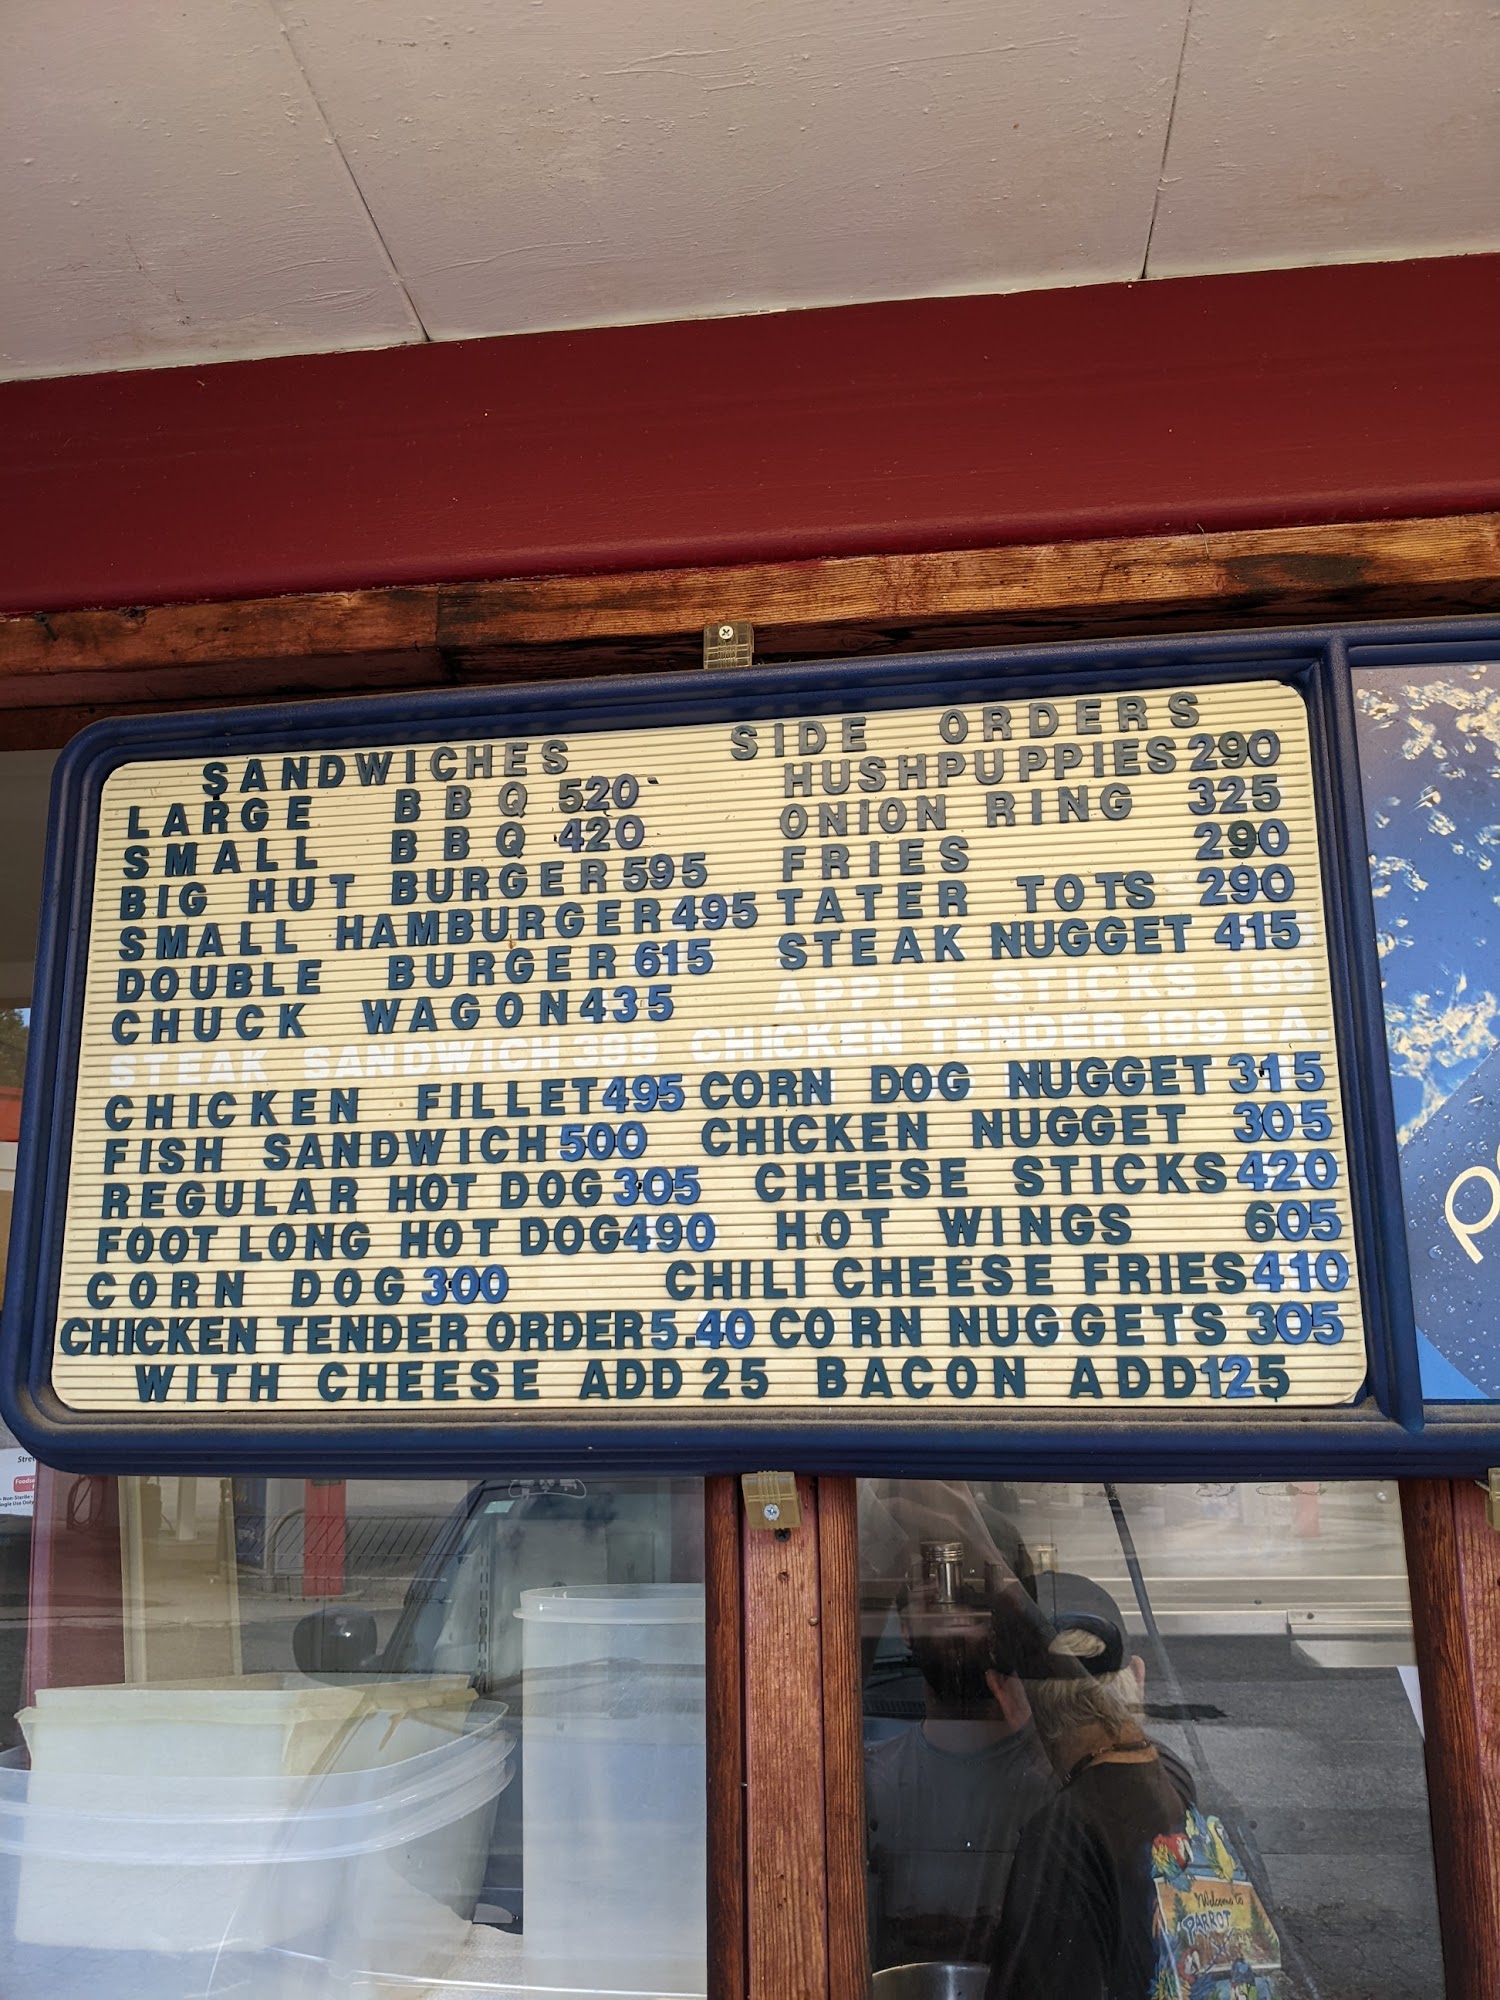 SANDWICHES
LARGE BBQ 520
SMALL BBQ 420
BIG HUT BURGER 595
SMALL HAMBURGER 495
DOUBLE BURGER 615
CHUCK WAGON 435
STEAK SANDWICH 395
CHICKEN FILLET 495
FISH SANDWICH 500
REGULAR HOT DOG 305
FOOT LONG HOT DOG 490
CORN DOG 300
CHICKEN TENDER ORDER 5.40
SIDE ORDERS
HUSHPUPPIES 290
ONION RING 325
FRIES 290
TATER TOTS 290
STEAK NUGGET 415
APPLE STICKS 199
CHICKEN TENDER 199 EA.
CORN DOG NUGGET 315
CHICKEN NUGGET 305
CHEESE STICKS 420
HOT WINGS 605
CHILI CHEESE FRIES 410
CORN NUGGETS 305
WITH CHEESE ADD 25 BACON ADD 125
Welcome to
PARROT